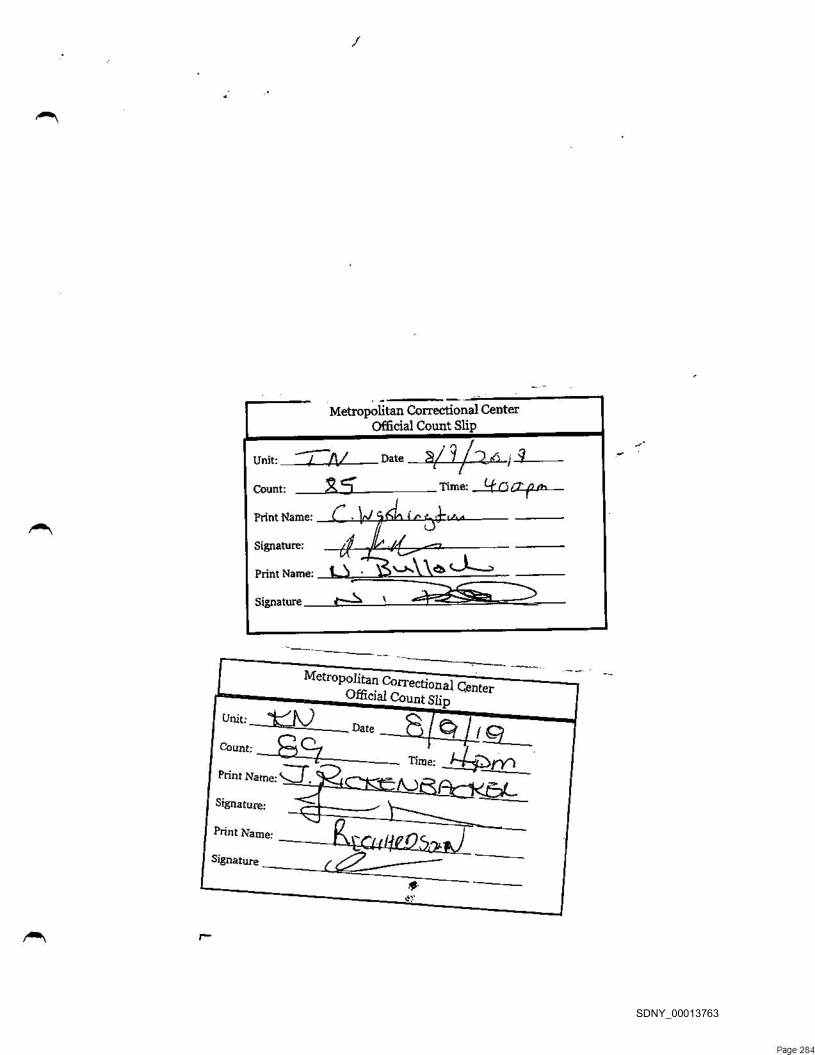 Metropolitan Correctional Center
Official Count Slip
Unit: IN Date 8/9/2019
Count: 85 Time: 400pm
Print Name: C. Washington
Signature:
Print Name: N. Bulloch
Signature N.
Metropolitan Correctional Center
Official Count Slip
Unit: KN Date 8/9/19
Count: 89 Time: 4pm
Print Name: J. RICKENBACKEL
Signature:
Print Name:
Signature
SDNY_00013763
Page 284